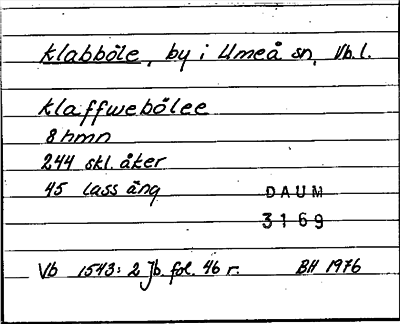 Klabböle, by i Umeå sn, Vb. l.
Klaffwebölee
8 hmn
244 skl. åker
45 lass äng
DAUM
3169
Vb 1543: 2 Jb. fol. 46 r. BH 1976